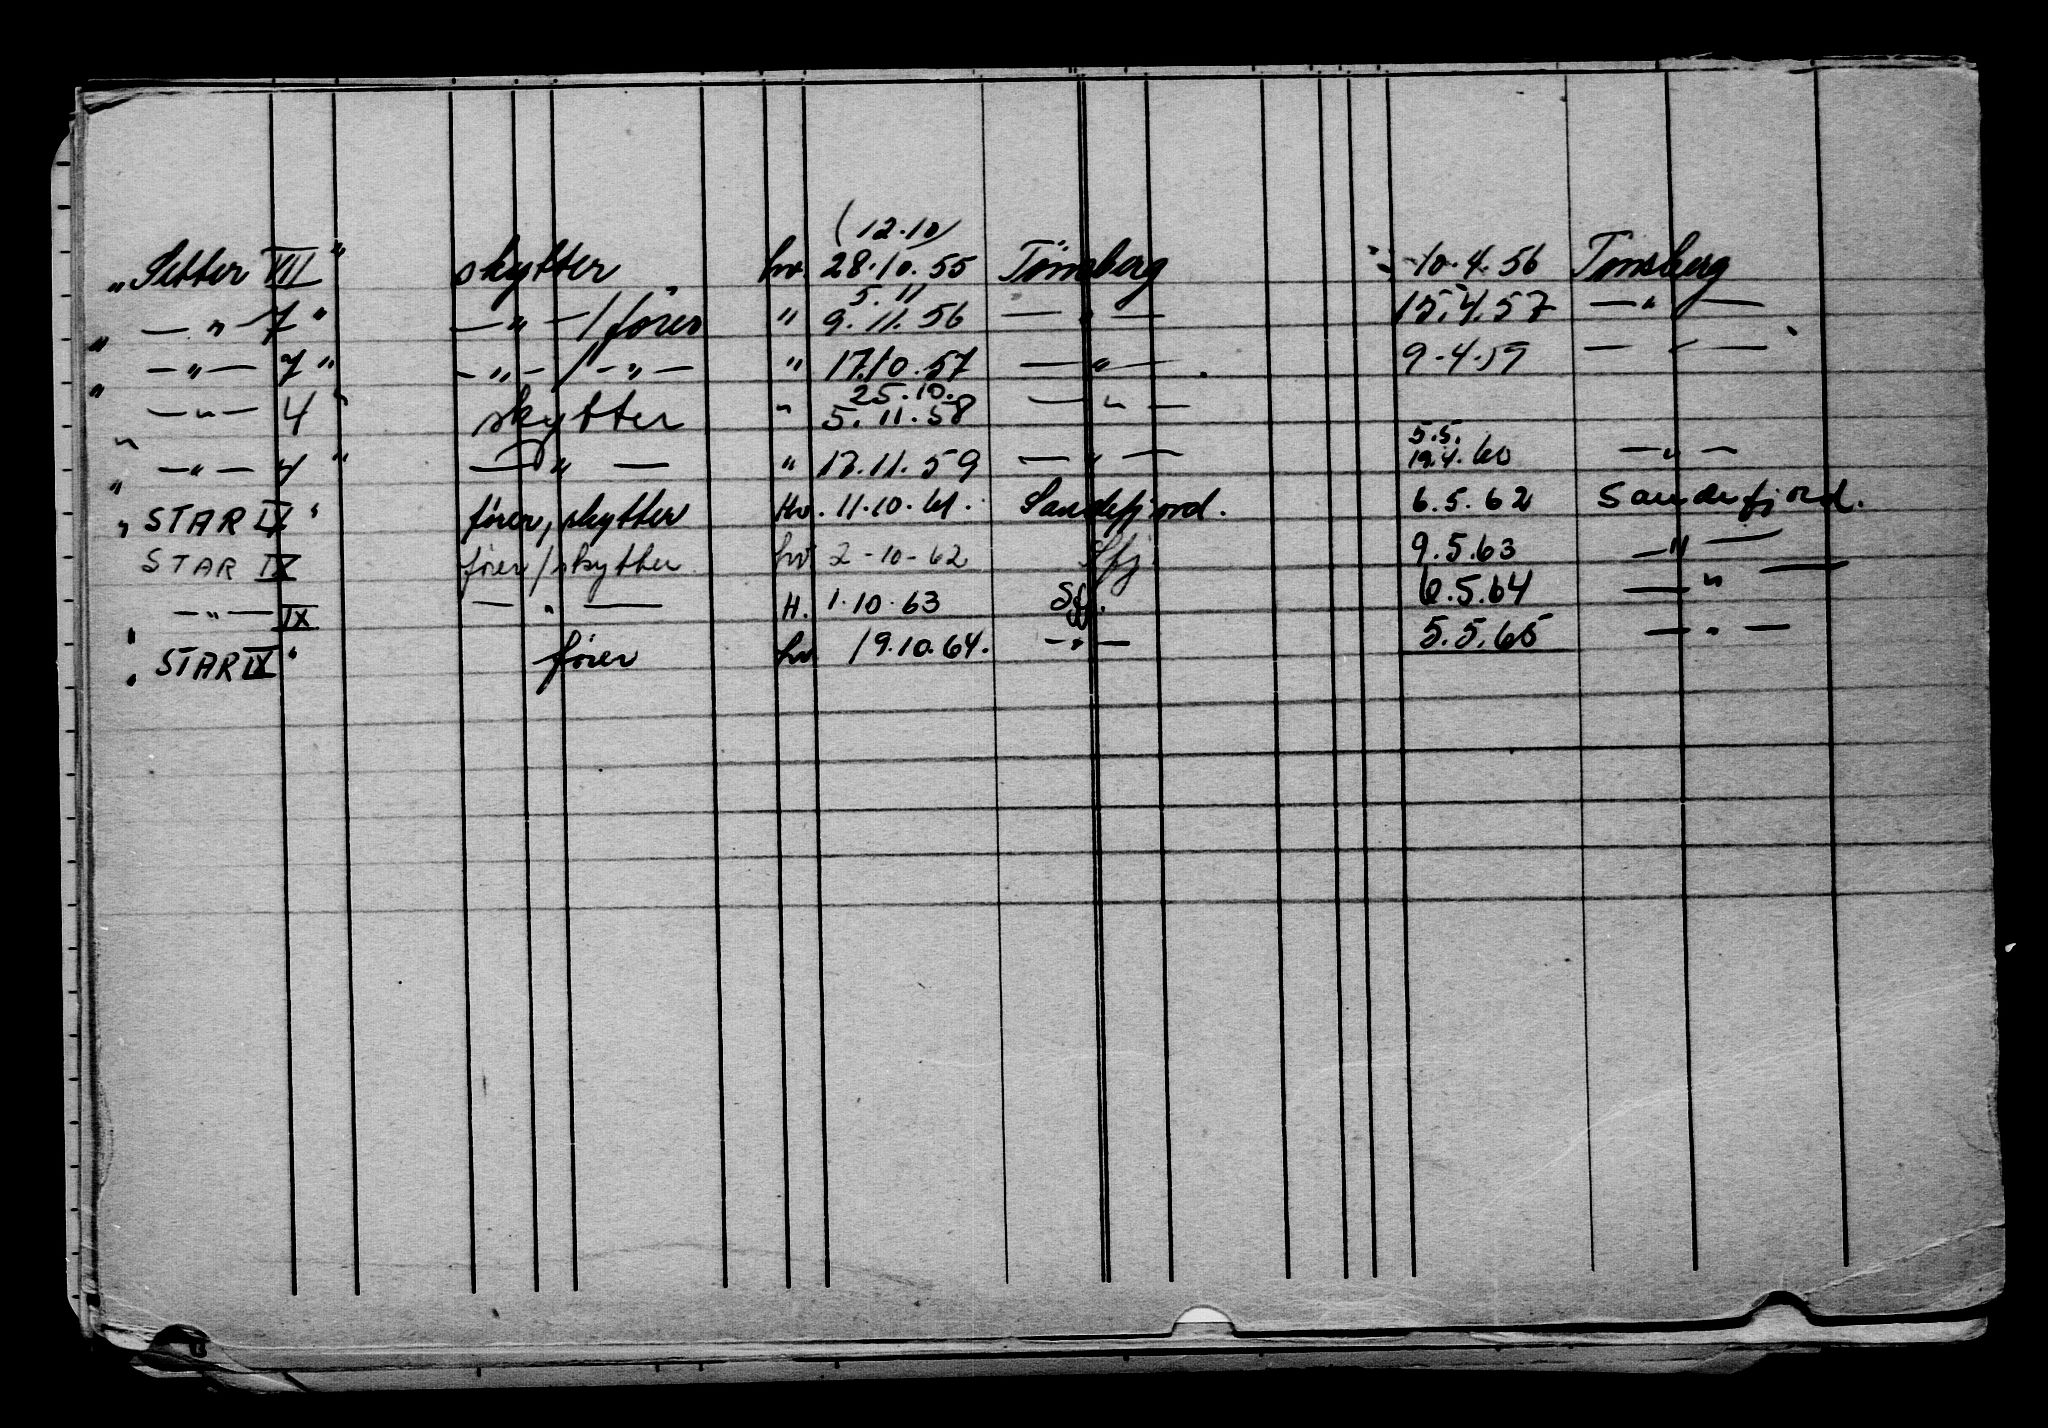 (12.10)
„Setter VII" skytter hv. 28.10.55 Tönsberg 10.4.56 Tönsberg
5.11
„ — " — 7" — " — / fører " 9.11.56 — " — 15.4.57 — " —
„ — " — 7" — " — / — " — " 17.10.57 — " — 9.4.59 — " —
25.10.
" — " — 4" skytter " 5.11.58 — " —
5.5.
" — " — 4" — " — " 17.11.59 — " — 19.4.60 — " —
„ STAR IX" fører, skytter Hv. 11.10.61. Sandefjord. 6.5.62 Sandefjord.
STAR IX fører/skytter hv 2-10-62 Sfj 9.5.63 — " —
— " — IX — " — H. 1.10.63 Sfj. 6.5.64 — " —
„ STAR IX" fører hv 19.10.64. — " — 5.5.65 — " —